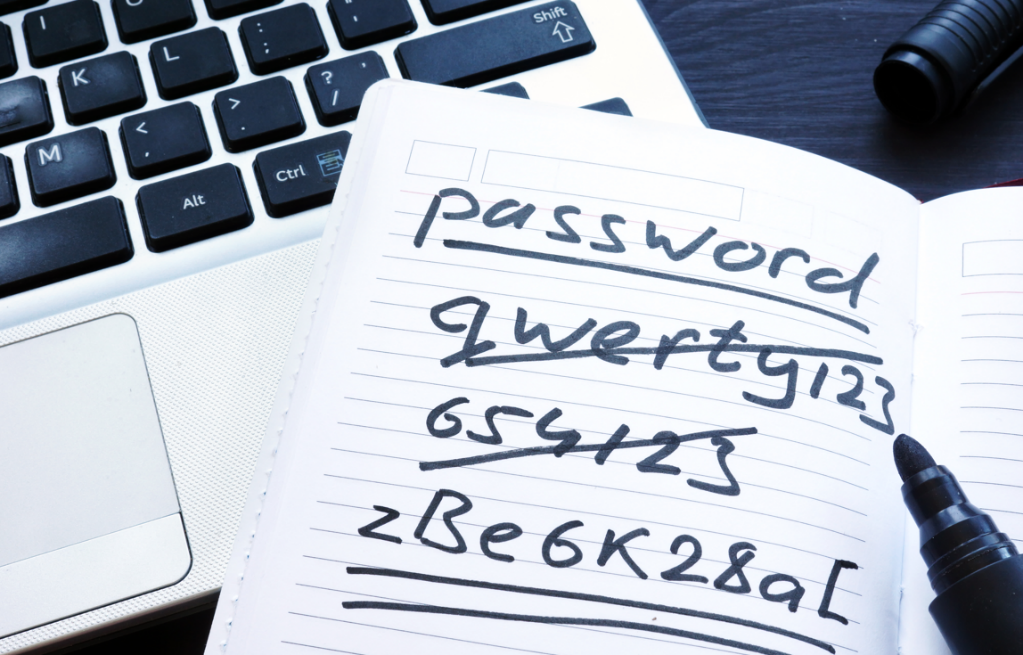 I O : ; " ' Shift
K L : ;
< , > . ? /
M Alt Ctrl
password
qwerty123
654123
zBe6K28a[